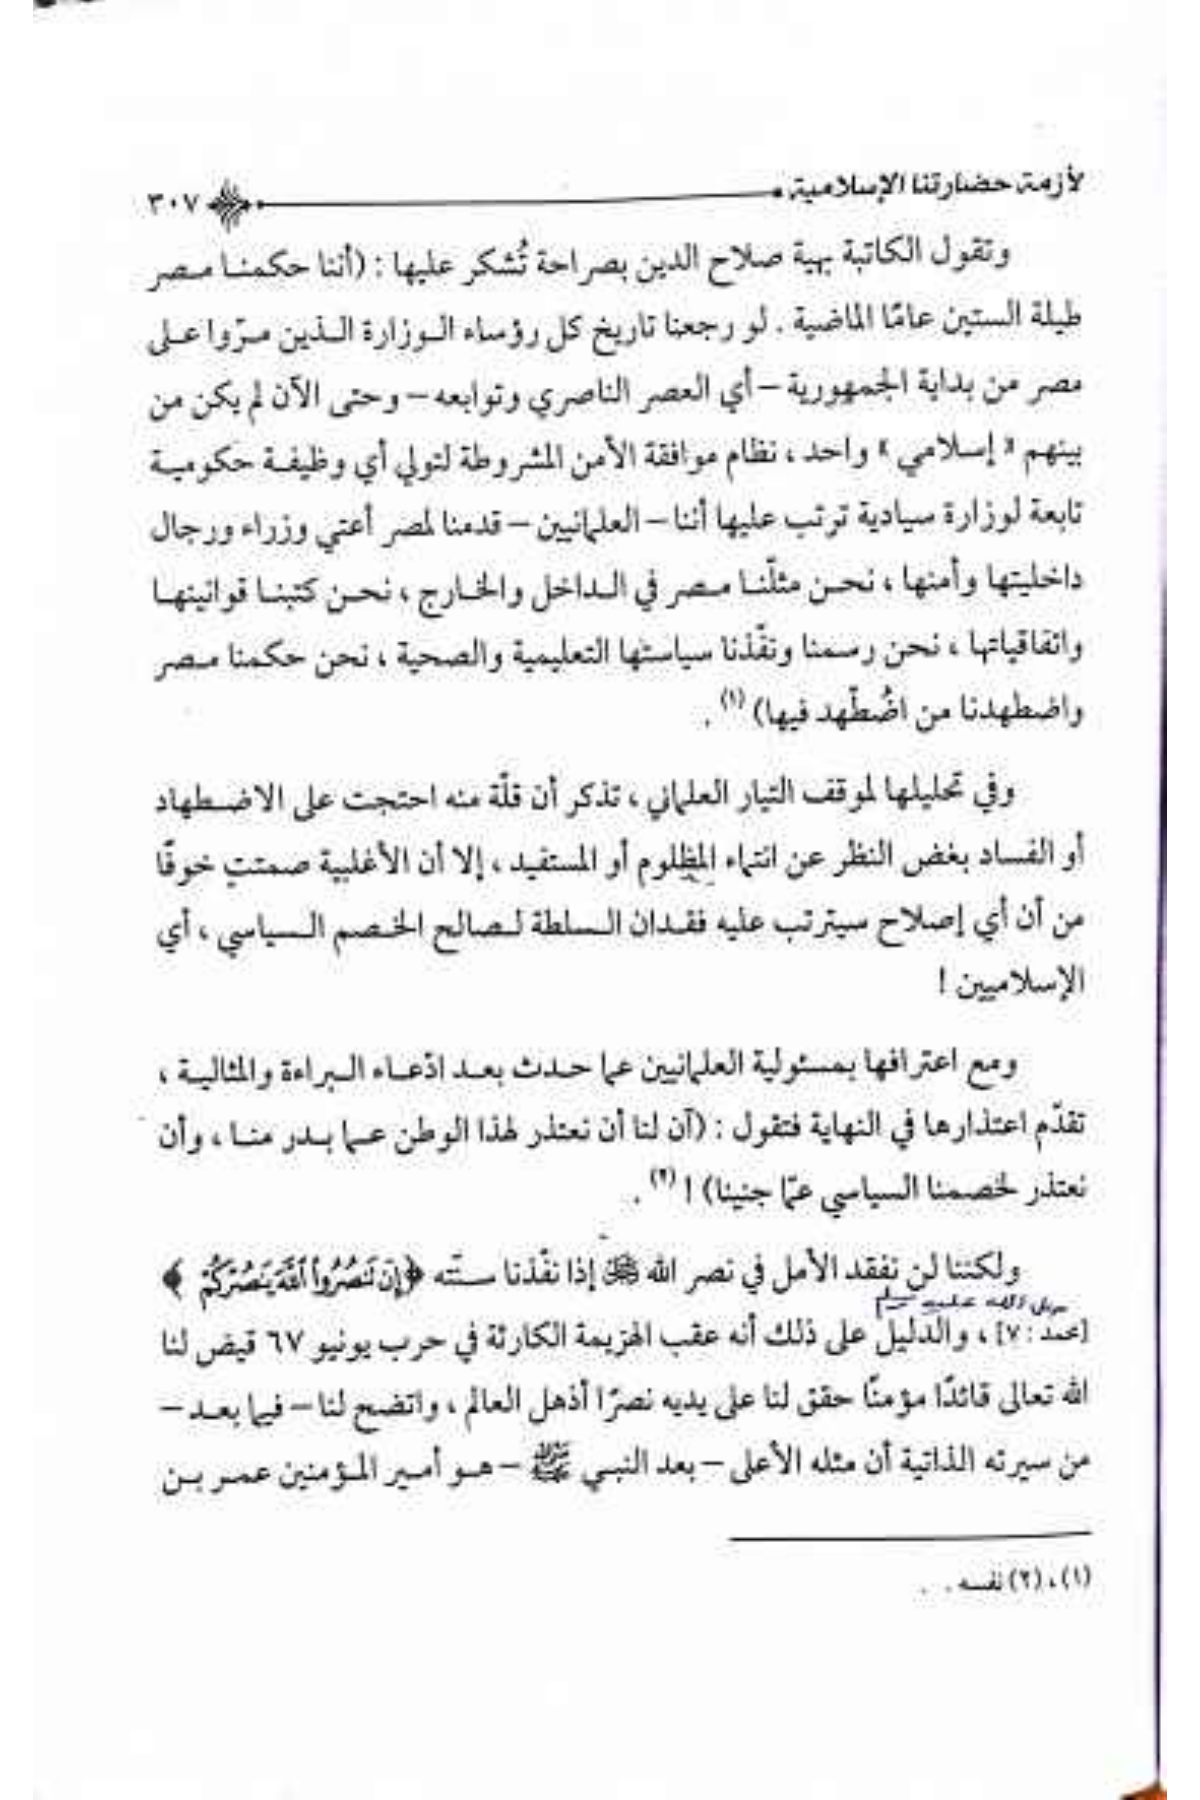 لأزمة حضارتنا الإسلامية ٣٠٧
وتقول الكاتبة بهية صلاح الدين بصراحة تُشكر عليها : (أننا حكمنا مصر
طيلة الستين عامًا الماضية . لو رجعنا تاريخ كل رؤساء الوزارة الذين مرّوا على
مصر من بداية الجمهورية – أي العصر الناصري وتوابعه – وحتى الآن لم يكن من
بينهم « إسلامي » واحد ، نظام موافقة الأمن المشروطة لتولي أي وظيفة حكومية
تابعة لوزارة سيادية ترتب عليها أننا – العلمانيين – قدمنا لمصر أعتي وزراء ورجال
داخليتها وأمنها ، نحن مثلّنا مصر في الداخل والخارج ، نحن كتبنا قوانينها
واتفاقياتها ، نحن رسمنا ونفّذنا سياستها التعليمية والصحية ، نحن حكمنا مصر
واضطهدنا من اضُطّهد فيها) (١) .
وفي تحليلها لموقف التيار العلماني ، تذكر أن قلّة منه احتجت على الاضطهاد
أو الفساد بغض النظر عن انتماء المظلوم أو المستفيد ، إلا أن الأغلبية صمتت خوفًا
من أن أي إصلاح سيترتب عليه فقدان السلطة لصالح الخصم السياسي ، أي
الإسلاميين !
ومع اعترافها بمسئولية العلمانيين عما حدث بعد ادّعاء البراءة والمثالية ،
تقدّم اعتذارها في النهاية فتقول : (آن لنا أن نعتذر لهذا الوطن عما بدر منا ، وأن
نعتذر لخصمنا السياسي عمّا جنينا) ! (٢) .
ولكننا لن نفقد الأمل في نصر الله ﷻ إذا نفّذنا سنّته ﴿إِن تَنصُرُوا۟ ٱللَّهَ يَنصُرْكُمْ ﴾
صلى الله عليه وسلم
[محمد : ٧] ، والدليل على ذلك أنه عقب الهزيمة الكارثة في حرب يونيو ٦٧ قيض لنا
الله تعالى قائدًا مؤمنًا حقق لنا على يديه نصرًا أذهل العالم ، واتضح لنا – فيما بعد –
من سيرته الذاتية أن مثله الأعلى – بعد النبي ﷺ – هو أمير المؤمنين عمر بن
(١) ، (٢) نفسه .